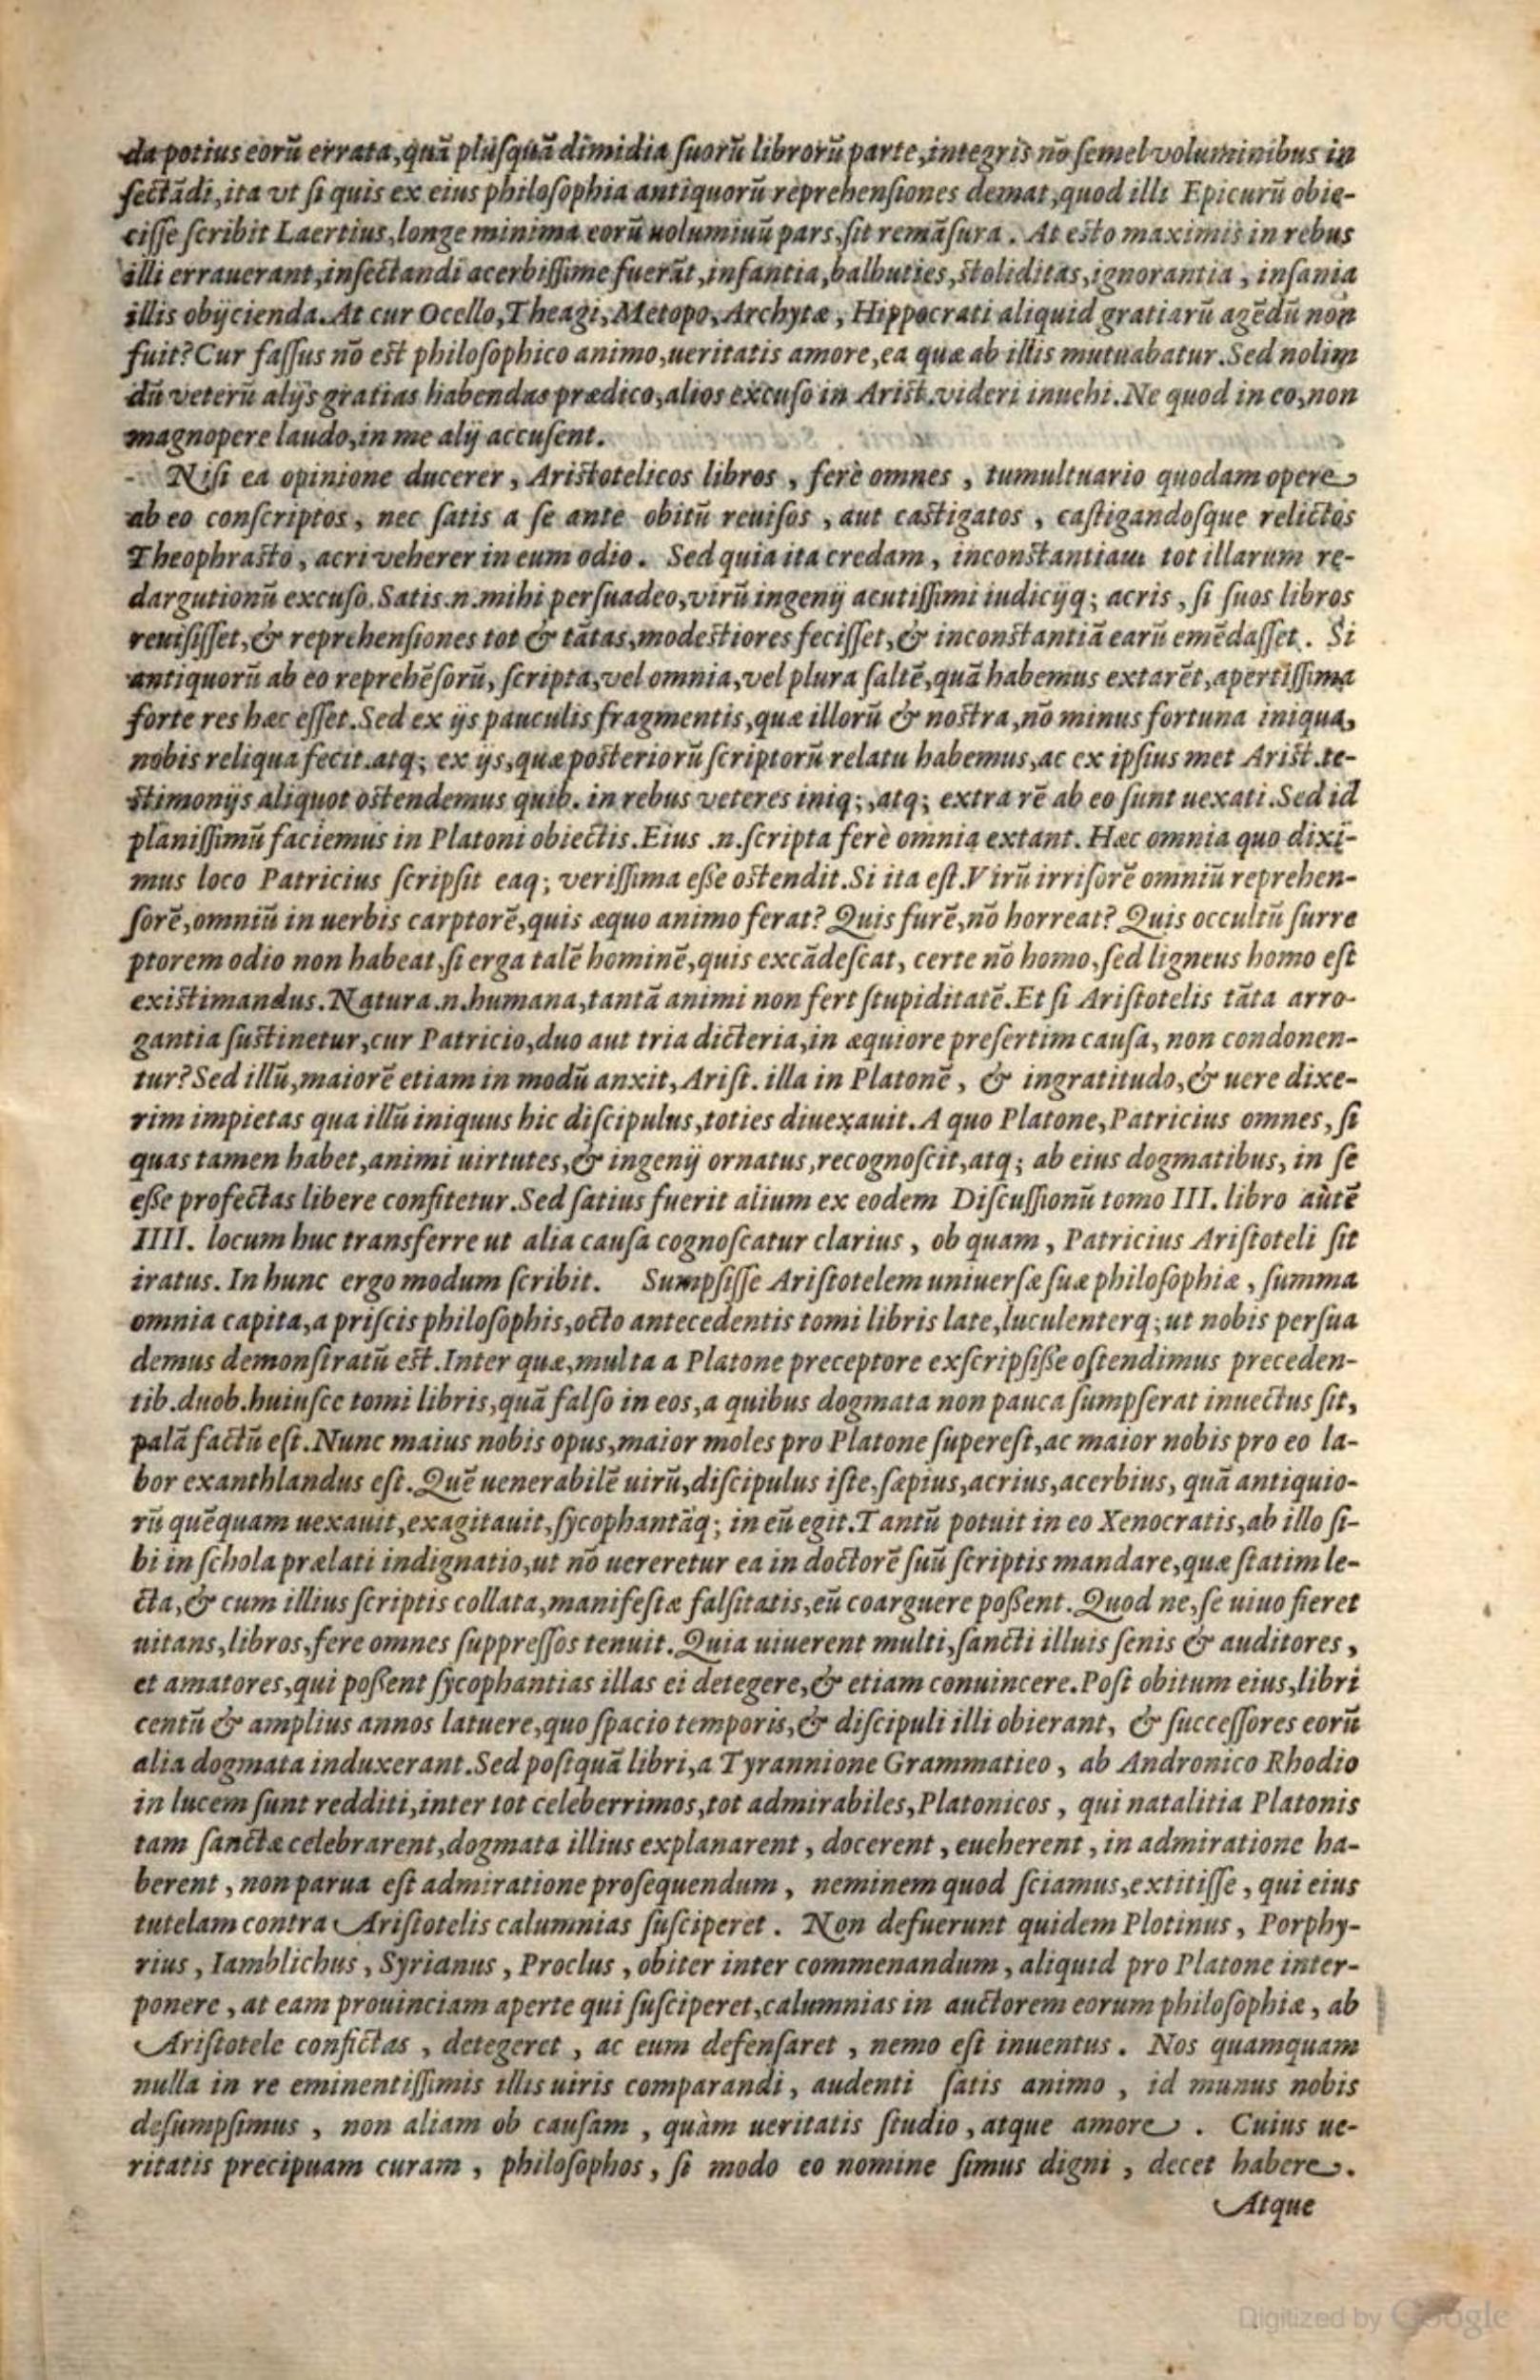 da potius eorū errata, quā plusquā dimidia suorū librorū parte, integris nō semel voluminibus in
sectādi, ita vt si quis ex eius philosophia antiquorū reprehensiones demat, quod illi Epicurū obie-
cisse scribit Laertius, longe minima eorū uoluminū pars, sit remāsura. At esto maximis in rebus
illi errauerant, insectandi acerbissime fuerāt, infantia, balbuties, stoliditas, ignorantia, insania
illis obijcienda. At cur Ocello, Theagi, Metopo, Archytæ, Hippocrati aliquid gratiarū agēdū non
fuit? Cur fassus nō est philosophico animo, ueritatis amore, ea quæ ab illis mutuabatur. Sed nolim
dū veterū alijs gratias habendas prædico, alios excuso in Arist. videri inuehi. Ne quod in eo, non
magnopere laudo, in me alij accusent.
Nisi ea opinione ducerer, Aristotelicos libros, ferè omnes, tumultuario quodam opere
ab eo conscriptos, nec satis a se ante obitū reuisos, aut castigatos, castigandosque relictos
Theophrasto, acri veherer in eum odio. Sed quia ita credam, inconstantiam tot illarum re-
dargutionū excuso. Satis .n. mihi persuadeo, virū ingenij acutissimi iudicijq; acris, si suos libros
reuisisset, & reprehensiones tot & tātas, modestiores fecisset, & inconstantiā earū emēdasset. Si
antiquorū ab eo reprehēsorū, scripta, vel omnia, vel plura saltē, quā habemus extarēt, apertissima
forte res hæc esset. Sed ex ijs pauculis fragmentis, quæ illorū & nostra, nō minus fortuna iniqua,
nobis reliqua fecit. atq; ex ijs, quæ posteriorū scriptorū relatu habemus, ac ex ipsius met Arist. te-
stimonijs aliquot ostendemus quib. in rebus veteres iniq;, atq; extra rē ab eo sunt uexati. Sed id
planissimū faciemus in Platoni obiectis. Eius .n. scripta ferè omnia extant. Hæc omnia quo dixi-
mus loco Patricius scripsit eaq; verissima esse ostendit. Si ita est. Virū irrisorē omniū reprehen-
sorē, omniū in uerbis carptorē, quis æquo animo ferat? Quis furē, nō horreat? Quis occultū surre
ptorem odio non habeat, si erga talē hominē, quis excādescat, certe nō homo, sed ligneus homo est
existimandus. Natura .n. humana, tantā animi non fert stupiditatē. Et si Aristotelis tāta arro-
gantia sustinetur, cur Patricio, duo aut tria dicteria, in æquiore presertim causa, non condonen-
tur? Sed illū, maiorē etiam in modū anxit, Arist. illa in Platonē, & ingratitudo, & uere dixe-
rim impietas qua illū iniquus hic discipulus, toties diuexauit. A quo Platone, Patricius omnes, si
quas tamen habet, animi uirtutes, & ingenij ornatus, recognoscit, atq; ab eius dogmatibus, in se
esse profectas libere confitetur. Sed satius fuerit alium ex eodem Discussionū tomo III. libro autē
IIII. locum huc transferre ut alia causa cognoscatur clarius, ob quam, Patricius Aristoteli sit
iratus. In hunc ergo modum scribit. Sumpsisse Aristotelem uniuersæ suæ philosophiæ, summa
omnia capita, a priscis philosophis, octo antecedentis tomi libris late, luculenterq; ut nobis persua
demus demonstratū est. Inter quæ, multa a Platone preceptore exscripsisse ostendimus preceden-
tib. duob. huiusce tomi libris, quā falso in eos, a quibus dogmata non pauca sumpserat inuectus sit,
palā factū est. Nunc maius nobis opus, maior moles pro Platone superest, ac maior nobis pro eo la-
bor exanthlandus est. Quē uenerabilē uirū, discipulus iste, sæpius, acrius, acerbius, quā antiquio-
rū quēquam uexauit, exagitauit, sycophantāq; in eū egit. Tantū potuit in eo Xenocratis, ab illo si-
bi in schola prælati indignatio, ut nō uereretur ea in doctorē suū scriptis mandare, quæ statim le-
cta, & cum illius scriptis collata, manifestæ falsitatis, eū coarguere possent. Quod ne, se uiuo fieret
uitans, libros, fere omnes suppressos tenuit. Quia uiuerent multi, sancti illuis senis & auditores,
et amatores, qui possent sycophantias illas ei detegere, & etiam conuincere. Post obitum eius, libri
centū & amplius annos latuere, quo spacio temporis, & discipuli illi obierant, & successores eorū
alia dogmata induxerant. Sed postquā libri, a Tyrannione Grammatico, ab Andronico Rhodio
in lucem sunt redditi, inter tot celeberrimos, tot admirabiles, Platonicos, qui natalitia Platonis
tam sanctæ celebrarent, dogmata illius explanarent, docerent, eueherent, in admiratione ha-
berent, non parua est admiratione prosequendum, neminem quod sciamus, extitisse, qui eius
tutelam contra Aristotelis calumnias susciperet. Non defuerunt quidem Plotinus, Porphy-
rius, Iamblichus, Syrianus, Proclus, obiter inter commenandum, aliquid pro Platone inter-
ponere, at eam prouinciam aperte qui susciperet, calumnias in auctorem eorum philosophiæ, ab
Aristotele confictas, detegeret, ac eum defensaret, nemo est inuentus. Nos quamquam
nulla in re eminentissimis illis uiris comparandi, audenti satis animo, id munus nobis
desumpsimus, non aliam ob causam, quàm ueritatis studio, atque amore. Cuius ue-
ritatis precipuam curam, philosophos, si modo eo nomine simus digni, decet habere.
Atque
Digitized by Google